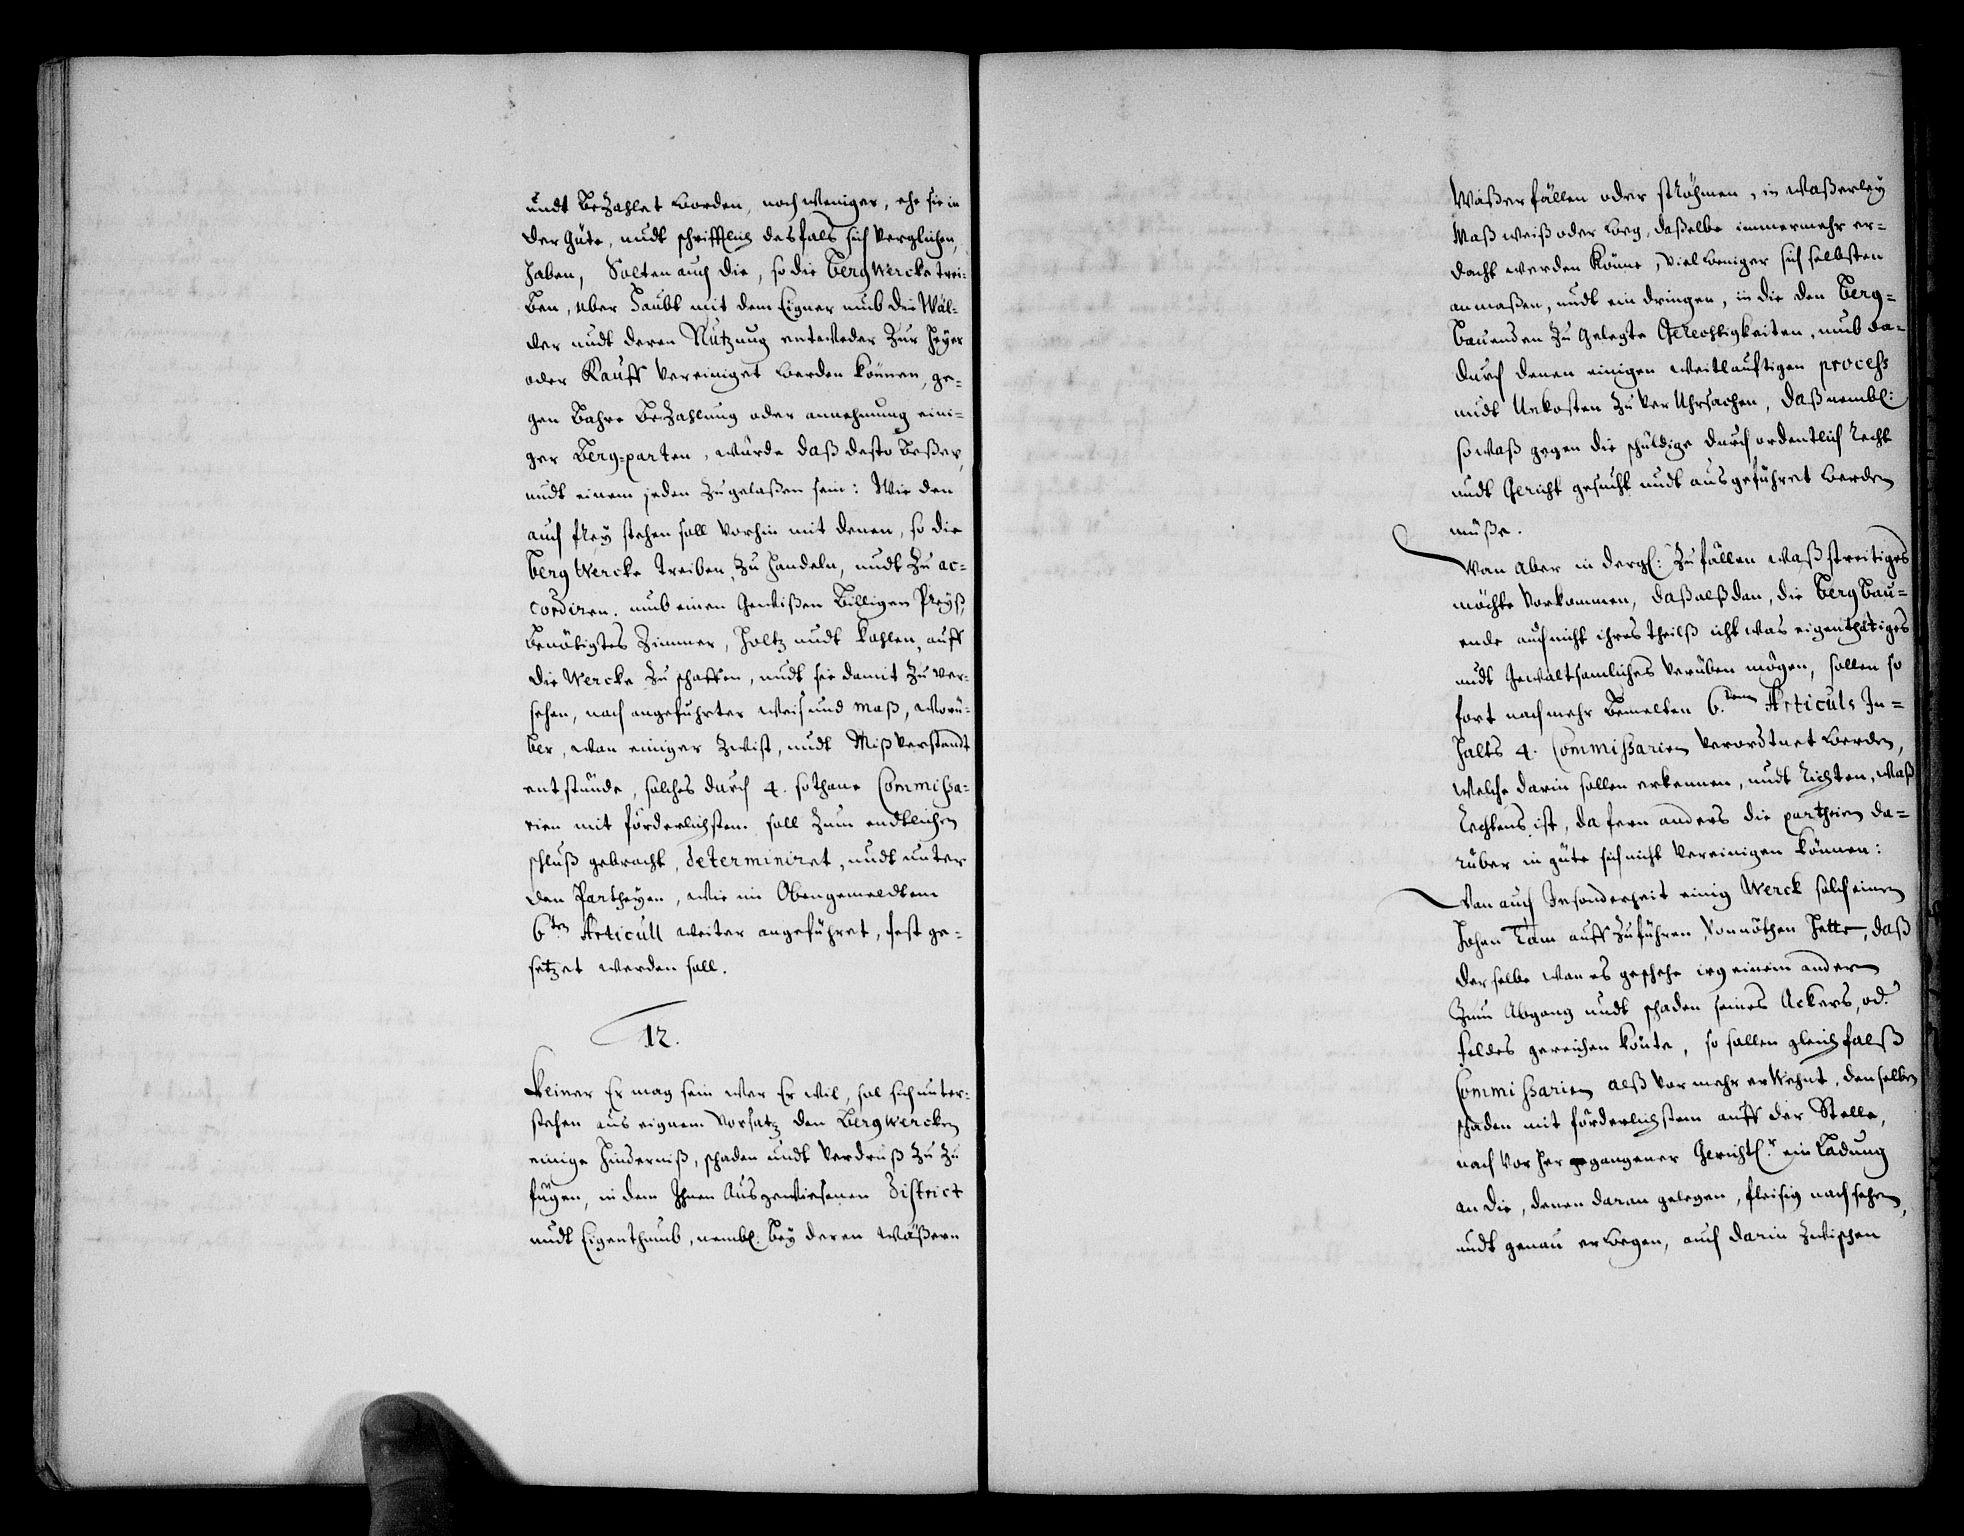 undt Bezahlet worden, noch weniger, ehe sie in
der Güte, undt schrifftlich desfals sich verglichen,
haben, Solten auch die, so die Berg Wercke trei-
ben, uber Haubt mit dem Eigner umb die Wäl-
der undt deren Nützung entweder Zur Heyer
oder Kauff vereiniget werden können, ge-
gen Bahre Bezahlung oder annehmung eini-
ger Berg=parten, würde daß desto Beßer,
undt einem jeden zugelaßen sein: Wie den
auch frey stehen soll vorhin mit denen, so die
Berg Wercke treiben, zu handeln, undt Zu ac-
cordiren, umb einen Gewißen Billigen Preyß,
Benötigtes Zimmer, Holtz undt Kohlen, auff
die Wercke Zu schaffen, undt sie damit Zu ver-
sehen, nach angeführter weis und maß, worü-
ber, wan einiger Zwist, undt Mißverstandt
entstünde, solches durch 4. sothane Commißa-
rien mit förderlichsten soll Zum endtlichen
schluß gebracht, determiniret, undt unter
den Partheyen, wie im Obengemeldtem
6ten Articull weiter angeführet, fest ge-
setzet werden soll.
12.
Keiner Er mag sein wer Er wil, sol sich unter-
stehen aus eignem Vorsatz den Bergwercken
einige Hinderniß, schaden undt Verdruß Zu Zu
fügen, in dem Ihnen Ausgewiesenen District
undt Eigenthumb, nembl. Bey deren Wäßern
Waßerfällen oder ströhmen, in waßerley
Maß weiß oder weg, daßelbe immermehr er-
dacht werden könne, viel weniger sich selbsten
anmaßen, undt ein dringen, in die den Berg-
bauenden Zu Gelegte Gerechtigkeiten, umb da-
durch denen einigen weitlauftigen process
undt Unkosten Zu ver Uhrsachen, daß nembl:
so waß gegen die schuldige durch ordentlich Recht
undt Gericht gesucht undt ausgeführet werden
müße.
Wan Aber in dergl: Zufällen waß streitiges
möchte vorkommen, daß alßdan, die Berg Bau-
ende auch nicht ihres theilß icht was eigenthätiges
undt Gewaltsamliches verüben mögen, sollen so
fort nach mehr Bemelten 6.tem Articuls In-
halts 4. Commißarien verordtnet werden,
welche darin sollen erkennen, undt Richten, waß
Rechtens ist, dafern anders die partheien da-
rüber in güte sich nicht vereinigen können:
Wan auch Insonderheit einig Werck solch einen
hohen Tam auff Zuführen vonnöthen hette, daß
derselbe wan es geschehe irg einem andern
Zum Abgang undt schaden seines Ackers, od.
feldes gereichen könte, so sollen gleichfalß
Commißarien alß vor mehr erWehnt, denselben
schaden mit förderlichstem auff der Stelle,
nach vor her gegangener Gerichtl.r ein Ladung
an die, denen daran gelegen, fleißig nachsehen,
undt genau erwegen, auch darin Zwischen